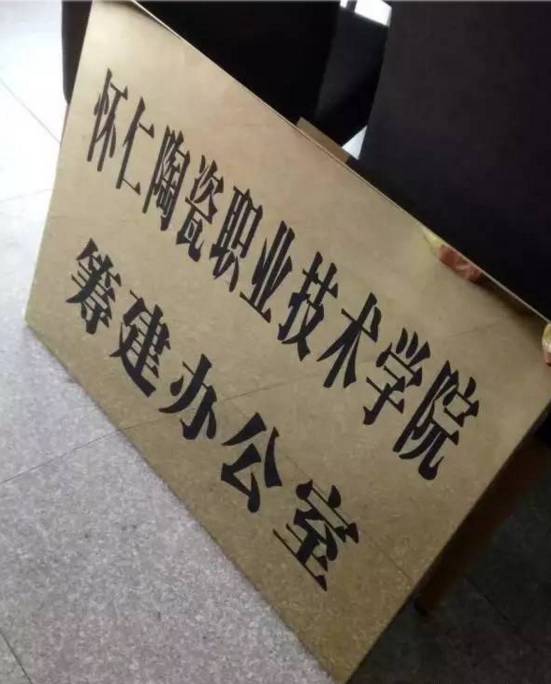 怀仁陶瓷职业技术学院
筹建办公室